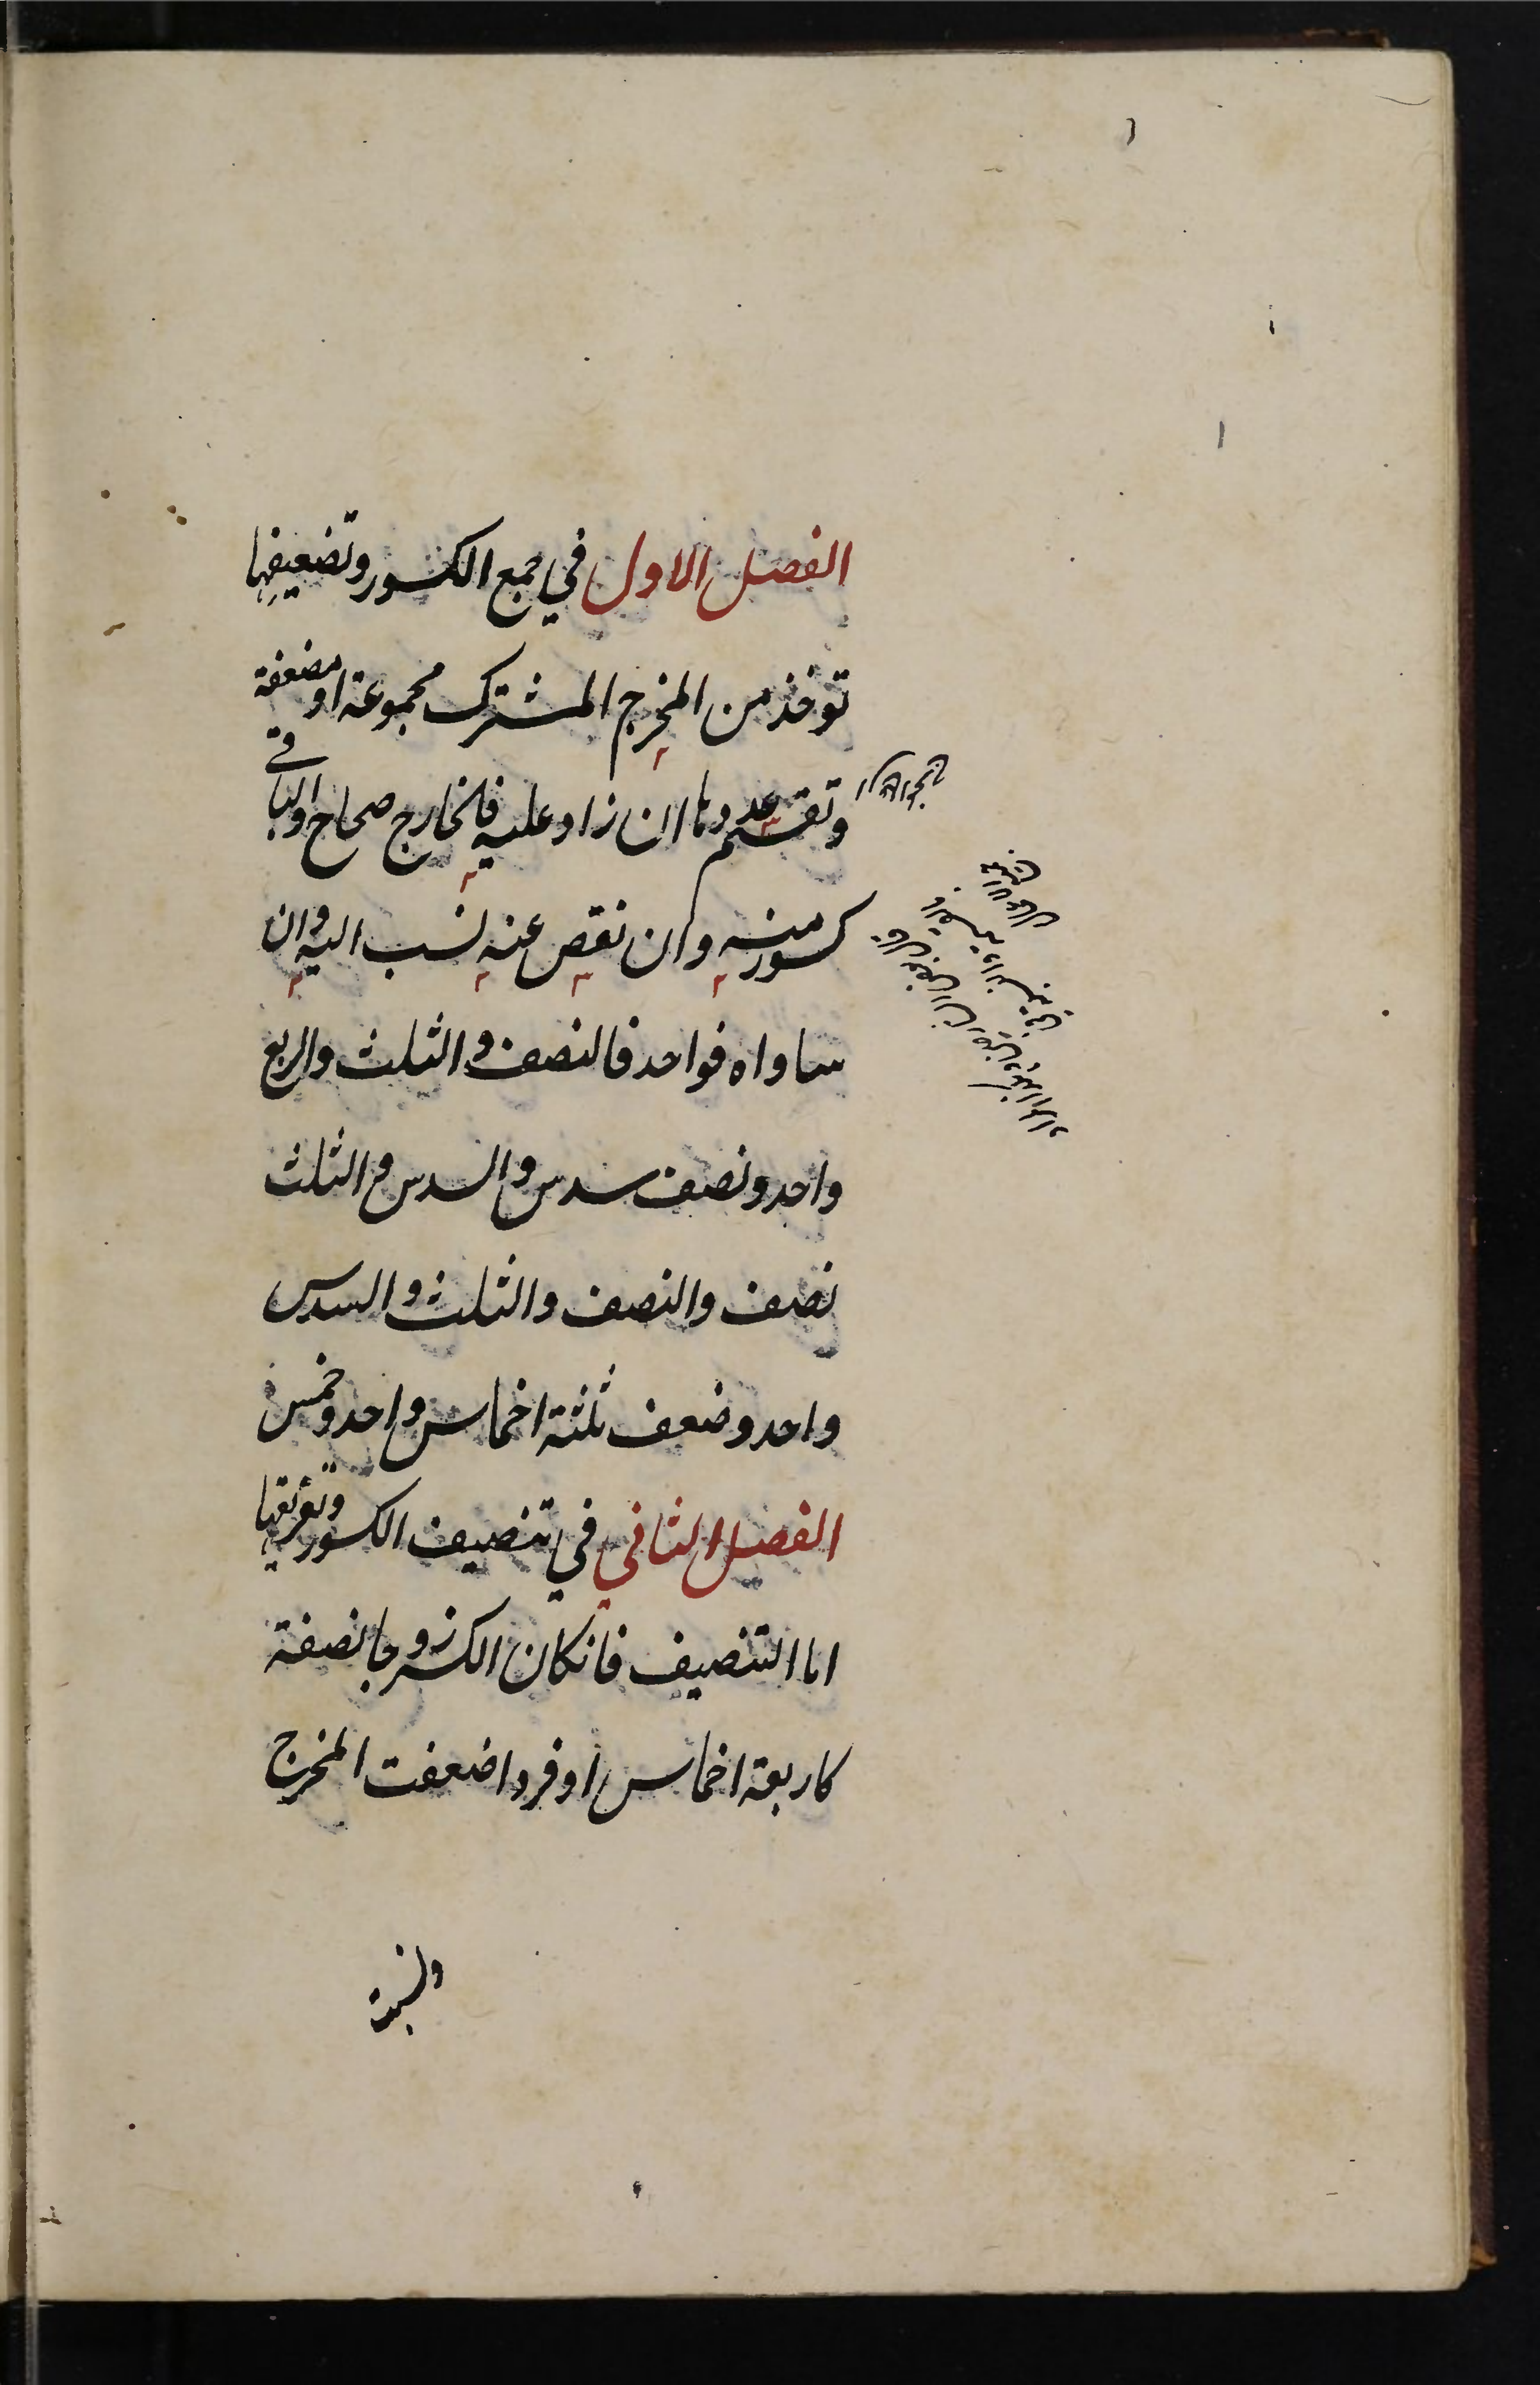 الفصل الاول في جمع الكسور وتضعيفها
توخذ من المخرج المشترك مجموعة او مضعفة
وتقسم عددها ان زاد عليه فالخارج صحاح والباقي
كسور منه وان نقص عنه نسب اليه وان
ساواه فواحد فالنصف والثلث والربع
واحد ونصف سدس والسدس والثلث
نصف والنصف والثلث والسدس
واحد وضعف ثلثة اخماس واحد وخمس
الفصل الثاني في تنصيف الكسور وتفريقها
اما التنصيف فانكان الكسر زوجا نصفته
كاربعة اخماس او فردا ضعفت المخرج
ونسبت